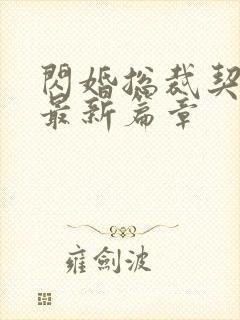 閃婚總裁契
最新篇章
雍劍波